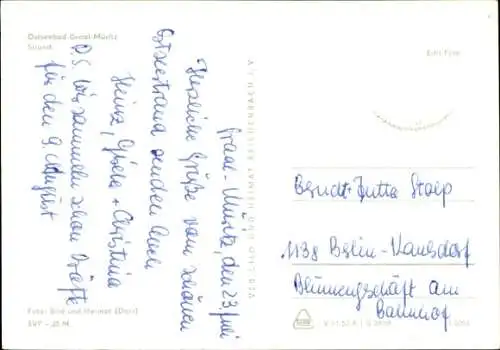 Ostseebad Graal-Müritz
Strand
Graal-Müritz, den 23. Juli
Herzliche Grüße vom schönen
Ostseestrand senden Euch
Heinz, Gisela + Christina
P.S. Wir sammeln schon Kräfte
für den 9. August
Foto: Bild und Heimat (Darr)
EVP -,20 M
VEB BILD UND HEIMAT REICHENBACH I. V.
Echt Foto
Berndt + Jutta Stolp
1138 Berlin-Kaulsdorf
Blumengeschäft am
Bahnhof